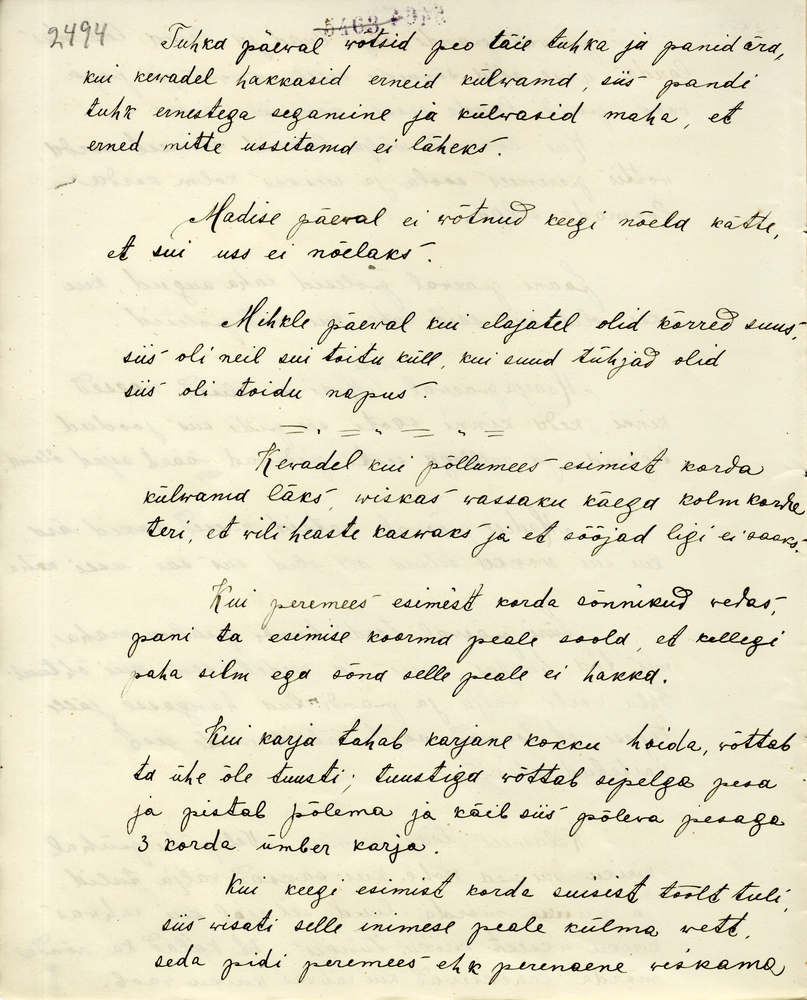 2494
Tuhka päewal wõtsid peo täie tuhka ja panid ära,
kui kewadel hakkasid erneid külwama, siis pandi
tuhk ernestega segamine ja külwasid maha, et
erned mitte ussitama ei läheks.
Madise päewal ei wõtnud keegi nõela kätte,
et sui uss ei nõelaks.
Mihkle päewal kui elajatel olid kõrred suus,
siis oli neil sui toitu küll, kui suud tühjad olid
siis oli toidu napus.
Kewadel kui põllumees esimist korda
külwama läks, wiskas wassaku käega kolm korda
teri, et wili heaste kaswaks ja et sööjad ligi ei saaks.
Kui peremees esimest korda sõnnikud wedas,
pani ta esimise koorma peale soola, et kellegi
paha silm ega sõna selle peale ei hakka.
Kui karja tahab karjane kokku hoida, wõttab
ta ühe õle tuusti; tuustiga wõttab sipelga pesa
ja pistab põlema ja käib siis põlewa pesaga
3 korda ümber karja.
Kui keegi esimist korda suisist töölt tuli,
siis wisati selle inimese peale külma wett,
seda pidi peremees ehk perenaene wiskama